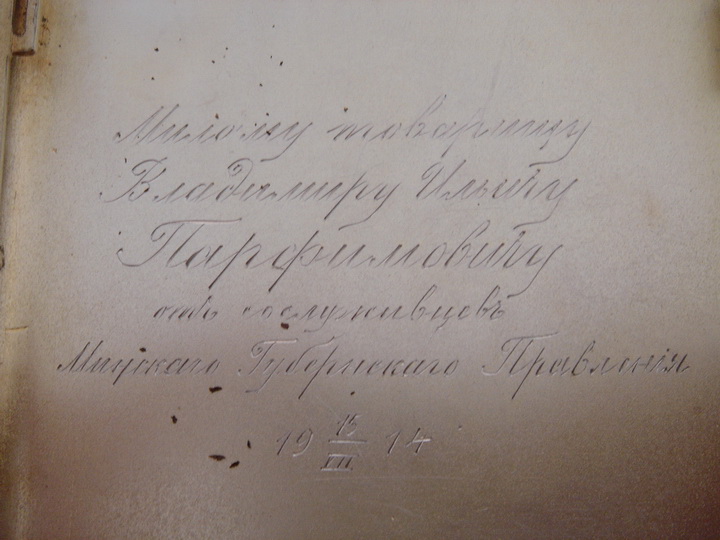 Милому товарищу
Владимиру Ильичу
Парфимовичу
отъ сослуживцевъ
Минскаго Губернскаго Правленія
19 15/III 14